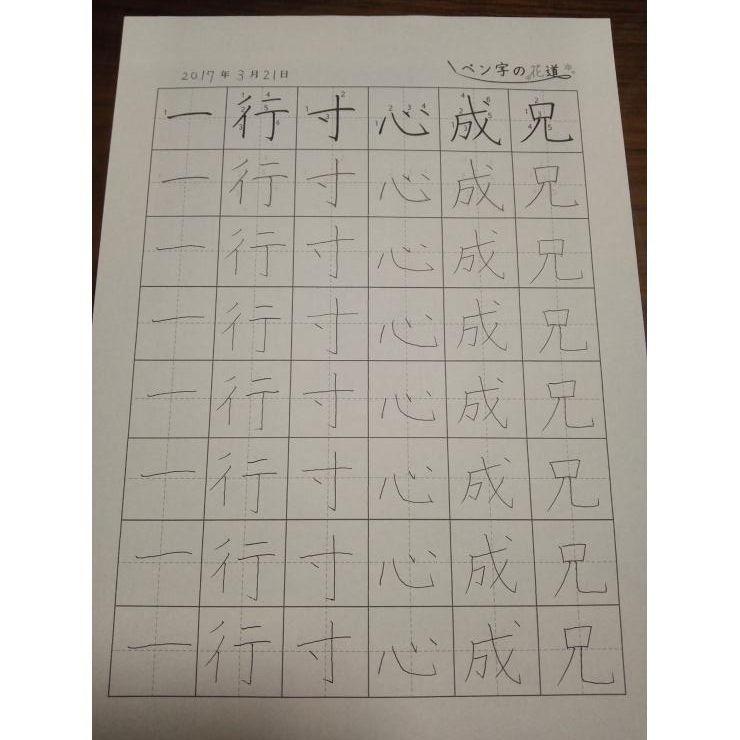 2017年3月21日 ペン字の花道
一 行 寸 心 成 兄
一 行 寸 心 成 兄
一 行 寸 心 成 兄
一 行 寸 心 成 兄
一 行 寸 心 成 兄
一 行 寸 心 成 兄
一 行 寸 心 成 兄
一 行 寸 心 成 兄